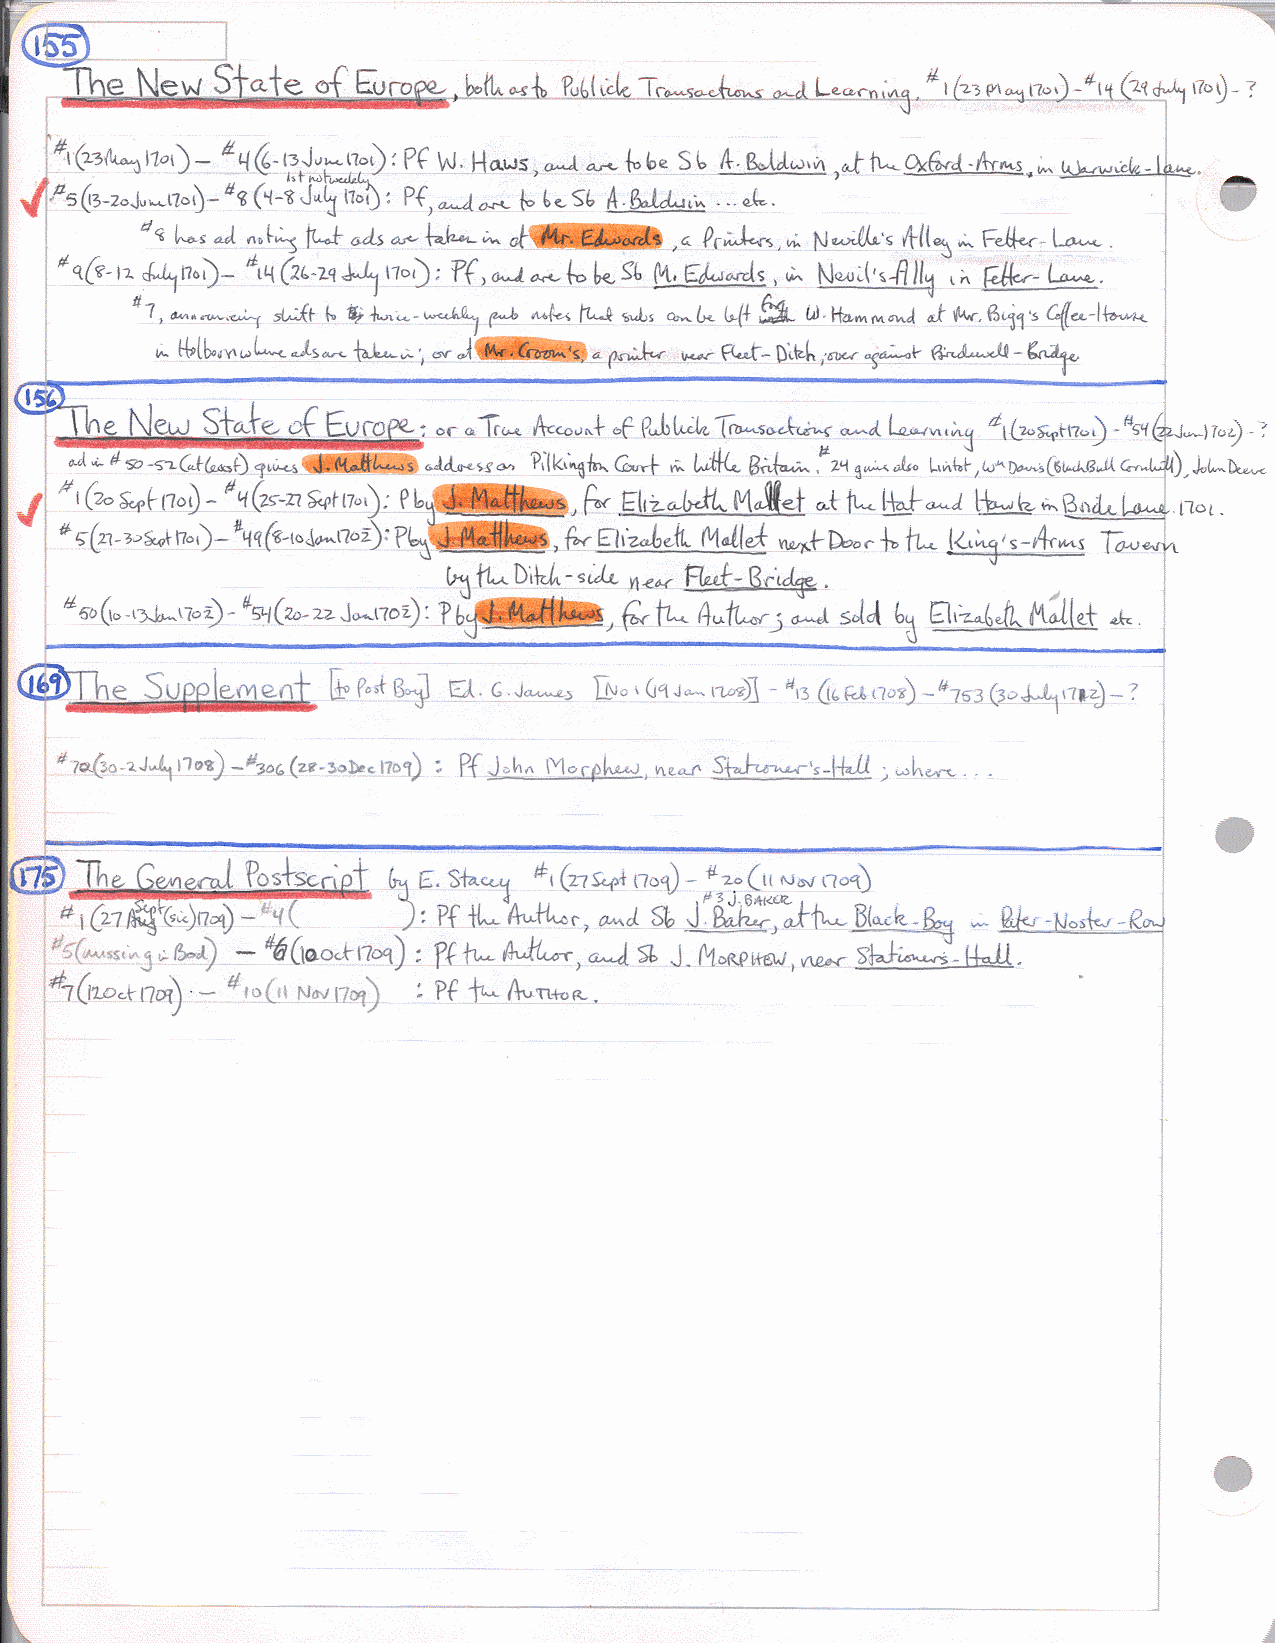 155
The New State of Europe, both as to Publick Transactions and Learning. #1 (23 May 1701) - #14 (29 July 1701) - ?
#1 (23 May 1701) - #4 (6-13 June 1701): Pf W. Haws, and are to be Sb A. Baldwin, at the Oxford-Arms, in Warwick-lane.
1st no twiceweekly
#5 (13-20 June 1701) - #8 (4-8 July 1701): Pf, and are to be Sb A. Baldwin ... etc.
#8 has ad noting that ads are taken in at Mr. Edwards, a Printers, in Neville's Alley in Fetter-Lane.
#9 (8-12 July 1701) - #14 (26-29 July 1701): Pf, and are to be Sb M. Edwards, in Nevil's-Ally in Fetter-Lane.
#7, announcing shift to twice-weekly pub notes that subs can be left for W. Hammond at Mr. Bigg's Coffee-House
in Holborn where ads are taken in; or at Mr. Croom's, a printer near Fleet-Ditch, over against Bridewell-Bridge
156
The New State of Europe; or a True Account of Publick Transactions and Learning #1 (20 Sept 1701) - #54 (22 Jan 1702) - ?
ad in #50-52 (at least) gives J. Matthews address as Pilkington Court in Little Britain. #24 gives also Lintot, Wm Davis (Black Bull Cornhill), John Deeve
#1 (20 Sept 1701) - #4 (25-27 Sept 1701): P by J. Matthews, for Elizabeth Mallet at the Hat and Hawk in Bride Lane. 1701.
#5 (27-30 Sept 1701) - #49 (8-10 Jan 1702): P by J. Matthews, for Elizabeth Mallet next Door to the King's-Arms Tavern
by the Ditch-side near Fleet-Bridge.
#50 (10-13 Jan 1702) - #54 (20-22 Jan 1702): P by J. Matthews, for the Author; and sold by Elizabeth Mallet etc.
169
The Supplement [to Post Boy] Ed. G. James [No 1 (19 Jan 1708)] - #13 (16 Feb 1708) - #753 (30 July 1712) - ?
#70 (30-2 July 1708) - #306 (28-30 Dec 1709) : Pf John Morphew, near Stationer's-Hall; where ...
175
The General Postscript by E. Stacey #1 (27 Sept 1709) - #20 (11 Nov 1709)
Sept #3 J. BAKER
#1 (27 Aug (sic) 1709) - #4 ( ): Pf the Author, and Sb J. Baker, at the Black-Boy in Pater-Noster-Row
#5 (missing in Bod) - #6 (10 Oct 1709) : Pf the Author, and Sb J. MORPHEW, near Stationers-Hall.
#7 (12 Oct 1709) - #10 (11 Nov 1709) : Pf the AUTHOR.